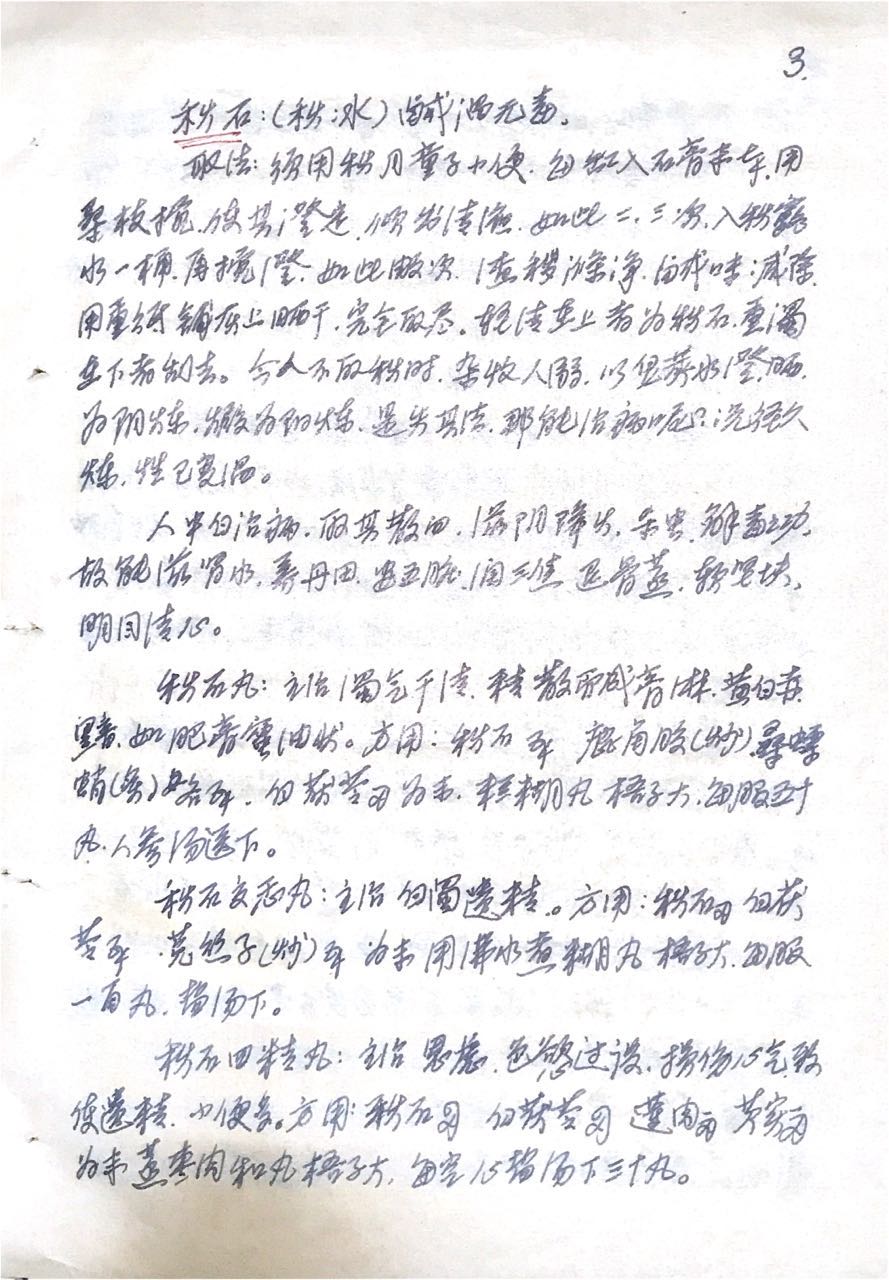 3.
秋石：（秋冰）鹹温无毒。
取法：须用秋月童子小便，每缸入石膏末　用
桑枝搅，使其澄定，倾去清液，如此二、三次，入秋露
水一桶，再搅澄，如此数次，渣秽涤净，鹹味减除，
用重纸鋪灰上晒干，完全取尽。轻清在上者为秋石，重浊
在下者刮去。今人不取秋时，杂收人溺，以皂荚水澄，晒
为阴炼，煅为阳炼，是失其法，那能治病呢？况经火
炼，性已变温。
人中白治病，取其散血，滋阴降火，杀虫，解毒之功，
故能滋肾水，养丹田，安五脏，润三焦，退骨蒸，软坚块，
明目清心。
秋石丸：主治浊气干清，精散而成膏淋，黄白赤
黯，如肥膏蜜油状。方用：秋石　鹿角胶（炒）桑螵
蛸（炙）各　，白茯苓　为末，糕糊丸梧子大，每服五十
丸，人参汤送下。
秋石交感丸：主治白浊遗精。方用：秋石　白茯
苓　菟丝子（炒）　为末用　水煮糊丸梧子大，每服
一百丸，盐汤下。
秋石四精丸：主治思虑，色慾过度，损伤心气，致
使遗精，小便多。方用：秋石　白茯苓　蓮肉　芡实
为末蒸枣肉和丸梧子大，每空心盐汤下三十丸。